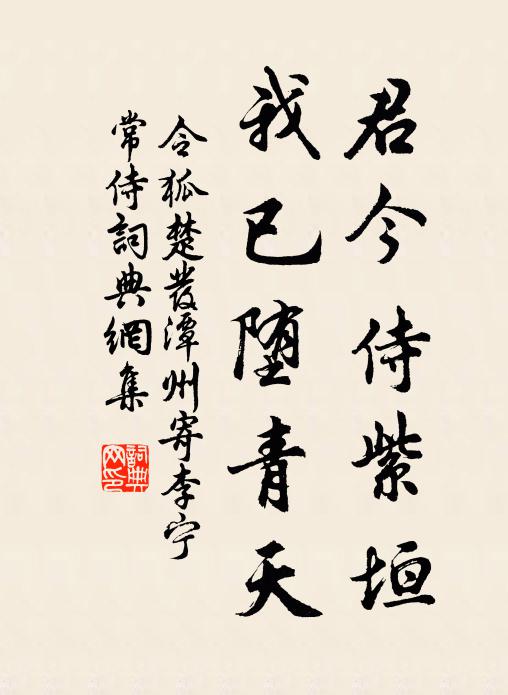 君今侍紫垣
我已堕青天
令狐楚發潭州寄李宁
常侍詞典網集
詞典网印